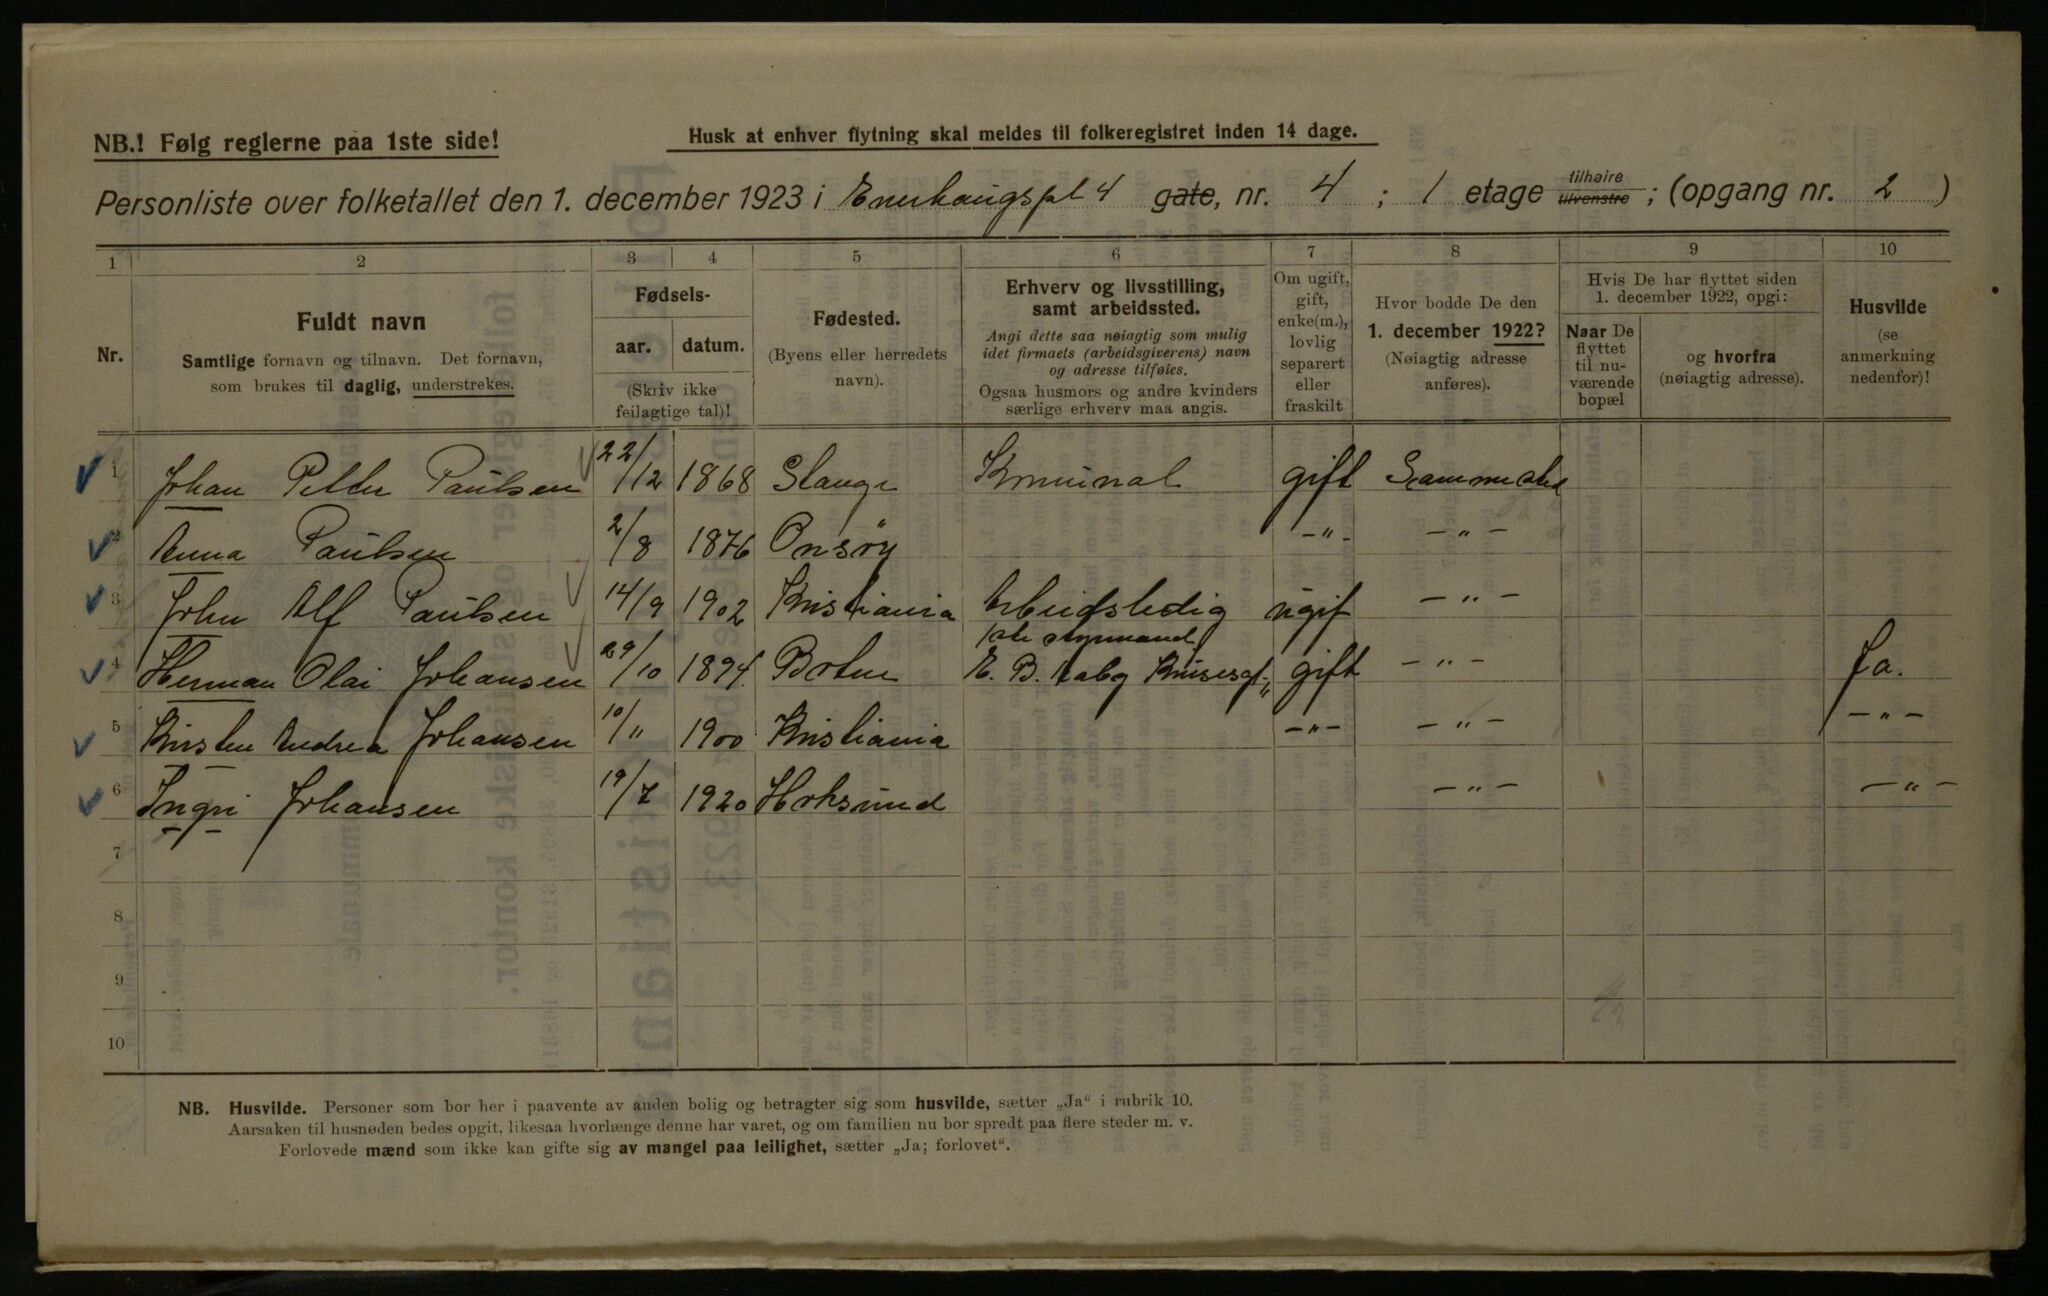 NB.! Følg reglerne paa 1ste side!
Husk at enhver flytning skal meldes til folkeregistret inden 14 dage.
Personliste over folketallet den 1. december 1923 i Enerhaugspl 4 gate, nr. 4 ; 1 etage tilhøire tilvenstre ; (opgang nr. 2 )
1 2 3 4 5 6 7 8 9 10
Nr.
Fuldt navn
Samtlige fornavn og tilnavn. Det fornavn,
som brukes til daglig, understrekes.
Fødsels-
aar. datum.
(Skriv ikke
feilagtige tal)!
Fødested.
(Byens eller herredets
navn).
Erhverv og livsstilling,
samt arbeidssted.
Angi dette saa nøiagtig som mulig
idet firmaets (arbeidsgiverens) navn
og adresse tilføies.
Ogsaa husmors og andre kvinders
særlige erhverv maa angis.
Om ugift,
gift,
enke(m.),
lovlig
separert
eller
fraskilt
Hvor bodde De den
1. december 1922?
(Nøiagtig adresse
anføres).
Hvis De har flyttet siden
1. december 1922, opgi:
Naar De
flyttet
til nu-
værende
bopæl
og hvorfra
(nøiagtig adresse).
Husvilde
(se
anmerkning
nedenfor)!
1 Johan Petter Paulsen 22/12 1868 Stange Kmunal gift Sammested
2 Anna Paulsen 2/8 1876 Onsöy -"- -"-
3 John Alf Paulsen 14/9 1902 Kristiania Arbeidsledig ugif -"-
1ste styrmand
4 Herman Olai Johansen 29/10 1894. Botne E. B. gift -"- Ja.
5 Kirsten Andrea Johansen 10/11 1900 Kristiania -"- -"- -"-
6 Ingri Johansen 19/7 1920 Hoksund -"- -"-
7
8
9
10
NB. Husvilde. Personer som bor her i paavente av anden bolig og betragter sig som husvilde, sætter „Ja" i rubrik 10.
Aarsaken til husnøden bedes opgit, likesaa hvorlænge denne har varet, og om familien nu bor spredt paa flere steder m. v.
Forlovede mænd som ikke kan gifte sig av mangel paa leilighet, sætter „Ja; forlovet".